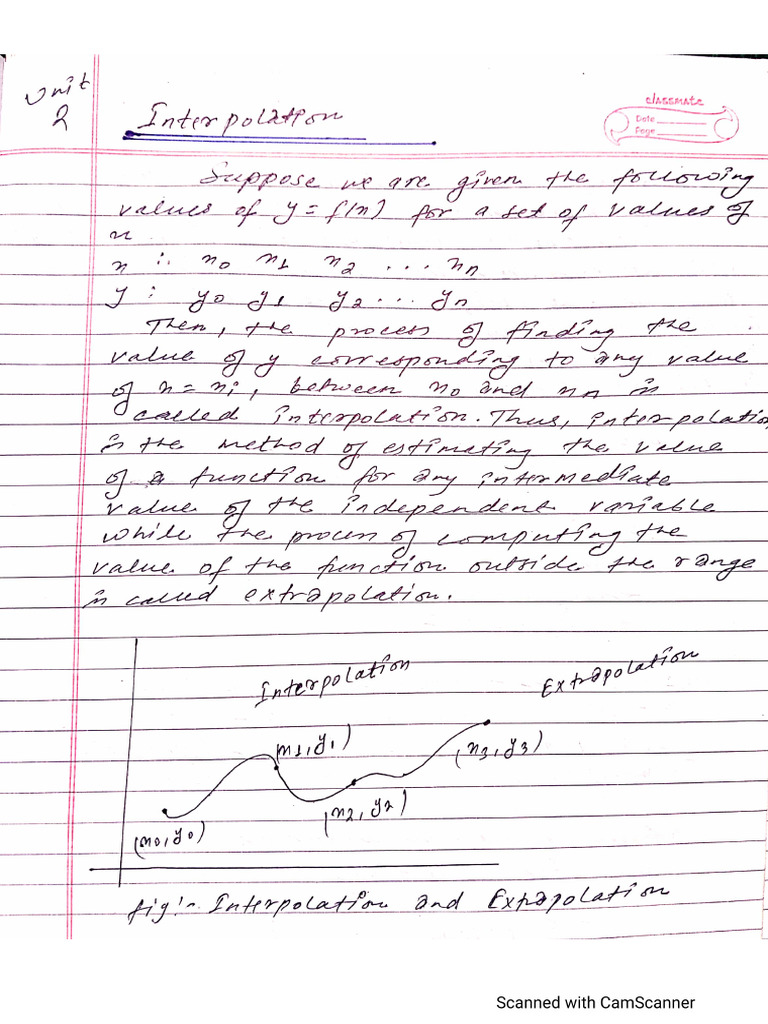 Unit
2
Interpolation
classmate
Date
Page
Suppose we are given the following
values of y = f(x) for a set of values of
x
x : x0 x1 x2 ... xn
y : y0 y1 y2 ... yn
Then, the process of finding the
value of y corresponding to any value
of x = xi, between x0 and xn is
called interpolation. Thus, interpolation
is the method of estimating the value
of a function for any intermediate
value of the independent variable
while the process of computing the
value of the function outside the range
is called extrapolation.
Interpolation
Extrapolation
(x1, y1)
(x3, y3)
(x2, y2)
(x0, y0)
fig:- Interpolation and Extrapolation
Scanned with CamScanner